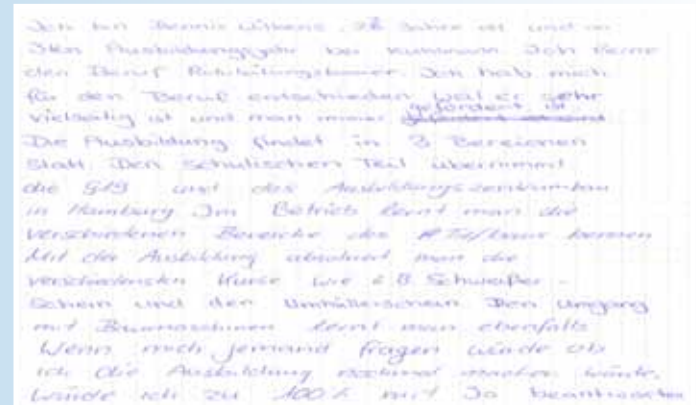 Ich bin Dennis Wilkens, Jahre alt und im
3ten Ausbildungsjahr bei Ich lerne
den Beruf Rohrleitungsbauer. Ich hab mich
für den Beruf entschieden weil er sehr
vielseitig ist und man immer gefordert ist
Die Ausbildung findet in 3 Bereichen
statt. Den schulischen Teil übernimmt
die G19 und das Ausbildungszentrum Bau
in Hamburg Im Betrieb lernt man die
verschiedenen Bereiche des kennen
Mit der Ausbildung absolviert man die
verschiedensten Kurse wie z.B. Schweißer-
schein und den Umhüllerschein. Den Umgang
mit Baumaschinen lernt man ebenfalls
Wenn mich jemand fragen würde ob
ich die Ausbildung nochmal machen würde,
würde ich zu 100% mit Ja beantworten